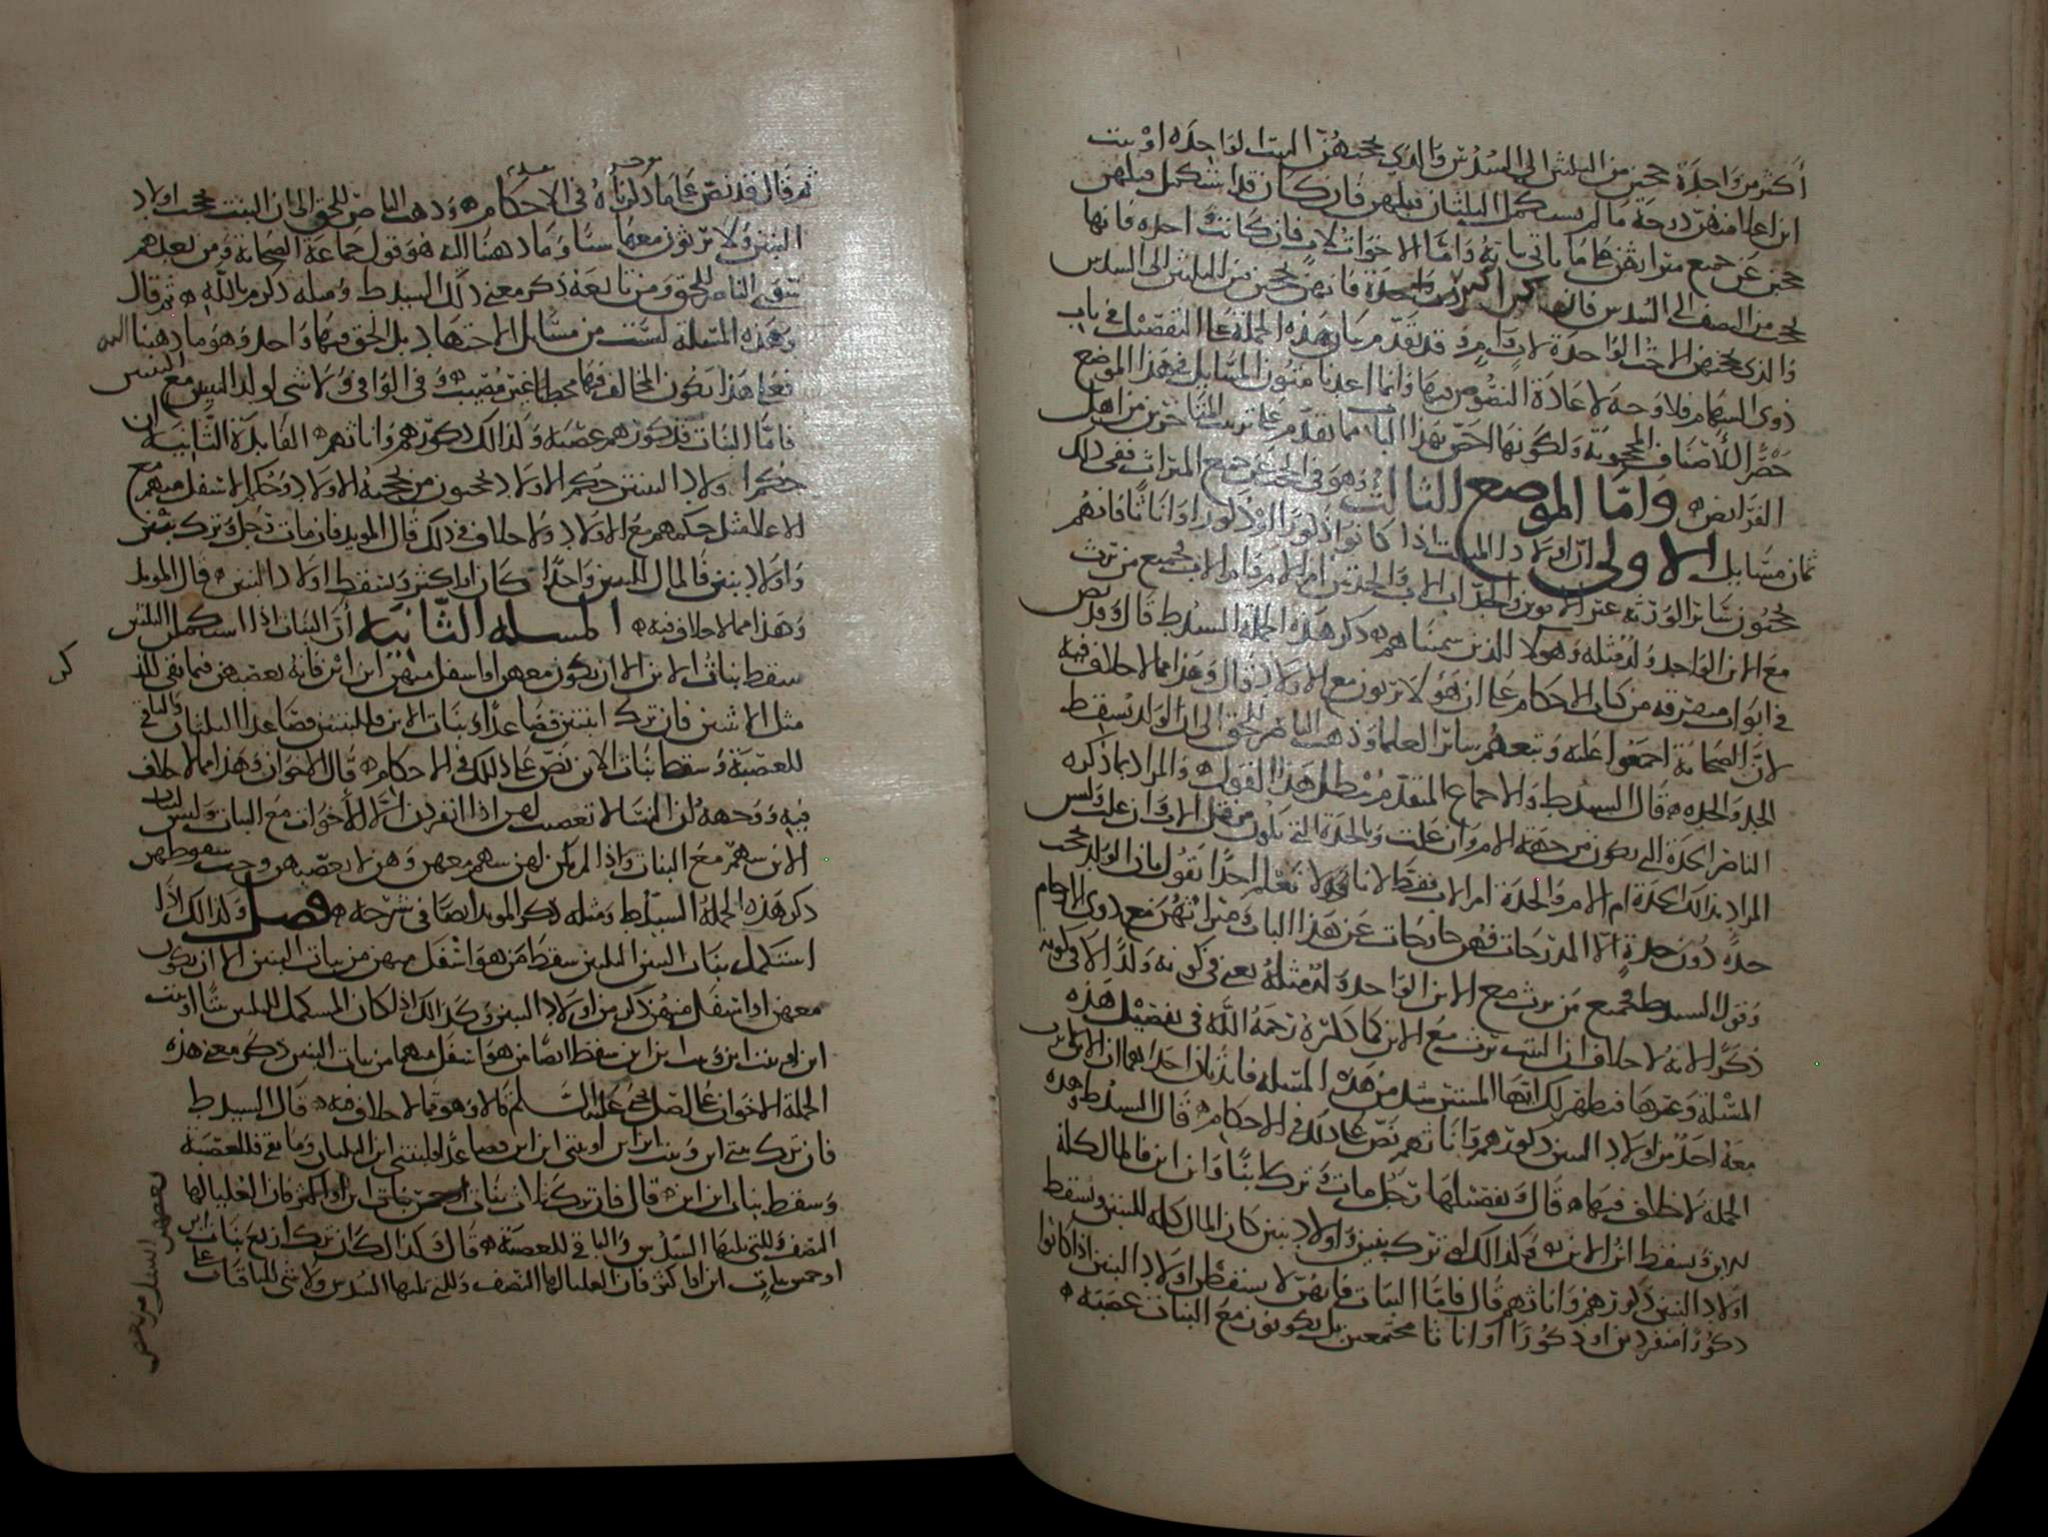 أكثر من واحدة حجبن من الثلثين الى السدس والذي يحجبهن البنت الواحدة او بنت
ابن اعلا منهن درجة ما لم يستكمل الثلثان قبلهن فان كان قد استكمل قبلهن
حجبن عن جميع ميراثهن على ما ياتي بيانه واما الاخوات لاب فان كانت واحده فانها
تحجب من النصف الى السدس فان كن اكثر من واحدة فانهن يحجبن من الثلثين الى السدس
والذي يحجبهن الاخت الواحدة لاب وام وقد تقدم بيان هذه الجملة على التفصيل في باب
ذوي السهام فلا وجه لاعادة النصوص فيها وانما اعدنا متون المسايل في هذا الموضع
حصرا للاصناف المحجوبة ولكونها اخص بهذا الباب مما تقدم على ترتيب المتاخرين من اهل
الفرائض واما الموضع الثالث وهو في الحجب عن جميع الميراث ففي ذلك
ثمان مسايل الاولى ان اولاد الميت اذا كانوا ذكورا او ذكورا واناثا فانهم
يحجبون سائر الورثة غير الابوين والجد اب الاب والجدتين ام الام وام الاب فجميع من يرث
مع الابن الواحد ولد مثله وهولا الذين سميناهم ذكر هذه الجملة السيد ط قال وقد نص
في ابواب متفرقه من كتاب الاحكام على ان هولا يرثون مع الاولاد قال وهذا مما لا خلاف فيه
لان الصحابة اجمعوا عليه وتبعهم سائر العلما وذهب الناصر للحق الى ان الولد يسقط
الجد والجده قال السيد ط والاجماع المتقدم يبطل هذا القول والمراد بما ذكره
الناصر الجدة التي تكون من جهة الام وان علت وبالجدة التي تكون من قبل الاب وان علت وليس
المراد بذلك الجدة ام الام والجدة ام الاب فقط لانا لا نعلم احدا يقول بان الولد يحجب
جدة دون جدة الا المدرجات فهن خارجات عن هذا الباب وميراثهن مع ذوي الارحام
وقول السيد ط فجميع من يرث مع الابن الواحد ولد مثله يعني في كونه ولدا لا في كونه
ذكرا لانه لا خلاف ان البنت ترث مع الابن كما ذكره رحمه الله في تفصيل هذه
المسئلة وغيرها فيظهر لك انها المستثنى من هذه المسئلة فايدتان احداهما ان الابن لا يرث
معه احد من اولاد البنين ذكورهم واناثهم نص على ذلك في الاحكام قال السيد ط وهذه
الجملة لا خلاف فيها قال وتفصيلها رجل مات وترك ابنا وابن ابن فالمال كله
للابن وسقط ابن الابن وكذلك ان ترك بنين واولاد بنين كان المال كله للبنين وسقط
اولاد البنين ذكورهم واناثهم قال فاما البنات فانهن لا يسقطن اولاد البنين اذا كانوا
ذكورا منفردين او ذكورا او اناثا مجتمعين بل يكونون مع البنات عصبة
ثم قال قد نص على ما ذكرناه في الاحكام وذهب الناصر للحق الى ان البنت تحجب اولاد
البنين ولا يرثون معها شيا وما ذهبنا اليه هو قول جماعة الصحابة ومن بعدهم
سوى الناصر للحق ومن تابعه ذكر معنى ذلك السيد ط ومثله ذكر م بالله ثم قال
وهذه المسئلة ليست من مسائل الاجتهاد بل الحق فيها واحد وهو ما ذهبنا اليه
فعلى هذا يكون المخالف فيها مخطئا غير مصيب وفي الوافي ولا شي لولد البنين مع البنين
فاما البنات فذكورهم عصبة وكذلك ذكورهم واناثهم الفايدة الثانية ان
حكم اولاد البنين حكم الاولاد يحجبون من يحجبه الاولاد وحكم الاسفل منهم مع
الاعلا مثل حكمهم مع الاولاد ولا خلاف في ذلك قال المويد فان مات رجل وترك بنين
واولاد بنين فالمال للبنين واحدا كان او اكثر ويسقط اولاد البنين قال المويد
وهذا مما لا خلاف فيه المسئله الثانيه ان البنات اذا استكملن الثلثين
سقط بنات الابن الا ان يكون معهن او اسفل منهن ابن ابن فانه يعصبهن فيما بقي للذكر
مثل الانثيين فان ترك ابنتين فصاعدا وبنات الابن فللبنتين فصاعدا الثلثان والباقي
للعصبة وسقط بنات الابن نص على ذلك في الاحكام قال الاخوان وهذا مما لا خلاف
فيه ووجهه ان النسا لا تعصيب لهن اذا انفردن الا للاخوات مع البنات وليس لبنات
الابن سهم مع البنات واذا لم يكن لهن سهم معهن وهن لا يعصبهن وجب سقوطهن
ذكر هذه الجملة السيد ط ومثله ذكر المويد ايضا في شرحه فصل وكذلك اذا
استكمل بنات البنين الثلثين سقط من هو اسفل منهن من بنات البنين الا ان يكون
معهن او اسفل منهن ذكر من اولاد البنين وكذلك اذا كان المستكمل للثلثين بنتا او بنت
ابن او بنت ابن وبنت ابن ابن سقط ايضا من هو اسفل منهما من بنات البنين ذكر معنى هذه
الجملة الاخوان على اصل يحيى عليه السلم قالا وهو مما لا خلاف فيه قال السيد ط
فان ترك بنتي ابن وبنت ابن ابن او بنتي ابن ابن فصاعدا فلبنتي ابن الثلثان وما بقي فللعصبة
وسقط بنات ابن ابن قال فان ترك ثلاث بنات ابن او اكثر فان العليا لها
النصف وللتي تليها السدس والباقي للعصبة قال وكذلك ان ترك اربع بنات ابن
او خمس بنات ابن او اكثر فان العليا لها النصف وللتي تليها السدس ولا شي للباقيات
بعضهن اسفل من بعض